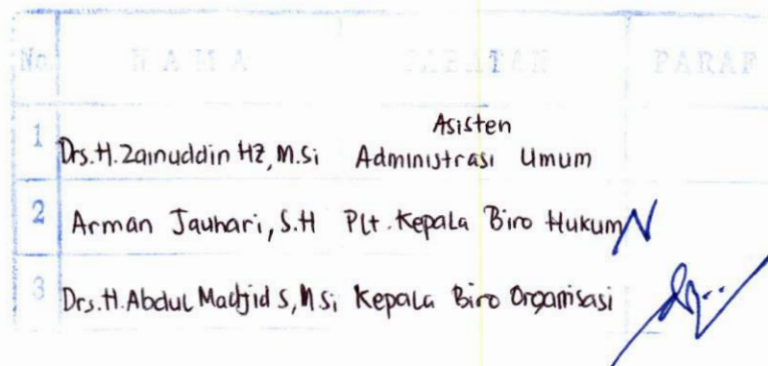 No. NAMA JABATAN PARAF
1 Drs.H.Zainuddin HZ, M.Si Asisten Administrasi Umum
2 Arman Jauhari, S.H Plt. Kepala Biro Hukum
3 Drs.H.Abdul Madjid S, MSi Kepala Biro Organisasi